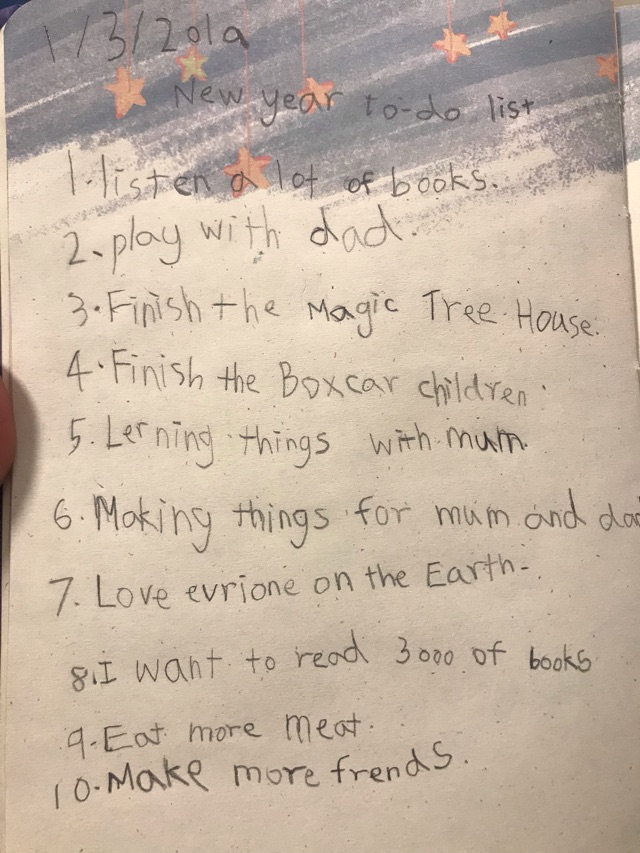 1/3/2019
New year to-do list
1. listen a lot of books.
2. play with dad.
3. Finish the Magic Tree House.
4. Finish the Boxcar children.
5. Lerning things with mum.
6. Making things for mum and
7. Love evrione on the Earth-
8. I want to read 3000 of books
9. Eat more meat.
10. Make more frends.